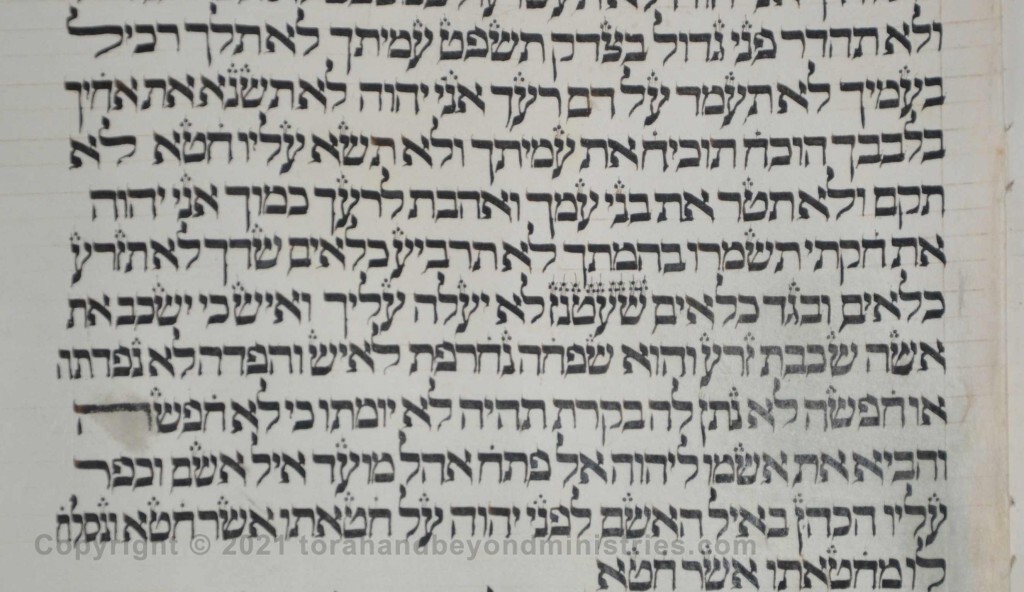 ולא תהדר פני גדול בצדק תשפט עמיתך לא תלך רכיל
בעמיך לא תעמד על דם רעך אני יהוה לא תשנא את אחיך
בלבבך הוכח תוכיח את עמיתך ולא תשא עליו חטא לא
תקם ולא תטר את בני עמך ואהבת לרעך כמוך אני יהוה
את חקתי תשמרו בהמתך לא תרביע כלאים שדך לא תזרע
כלאים ובגד כלאים שעטנז לא יעלה עליך ואיש כי ישכב את
אשה שכבת זרע והוא שפחה נחרפת לאיש והפדה לא נפדתה
או חפשה לא נתן לה בקרת תהיה לא יומתו כי לא חפשה
והביא את אשמו ליהוה אל פתח אהל מועד איל אשם וכפר
עליו הכהן באיל האשם לפני יהוה על חטאתו אשר חטא ונסלח
Copyright © 2021 torahandbeyondministries.com
לו מחטאתו אשר חטא